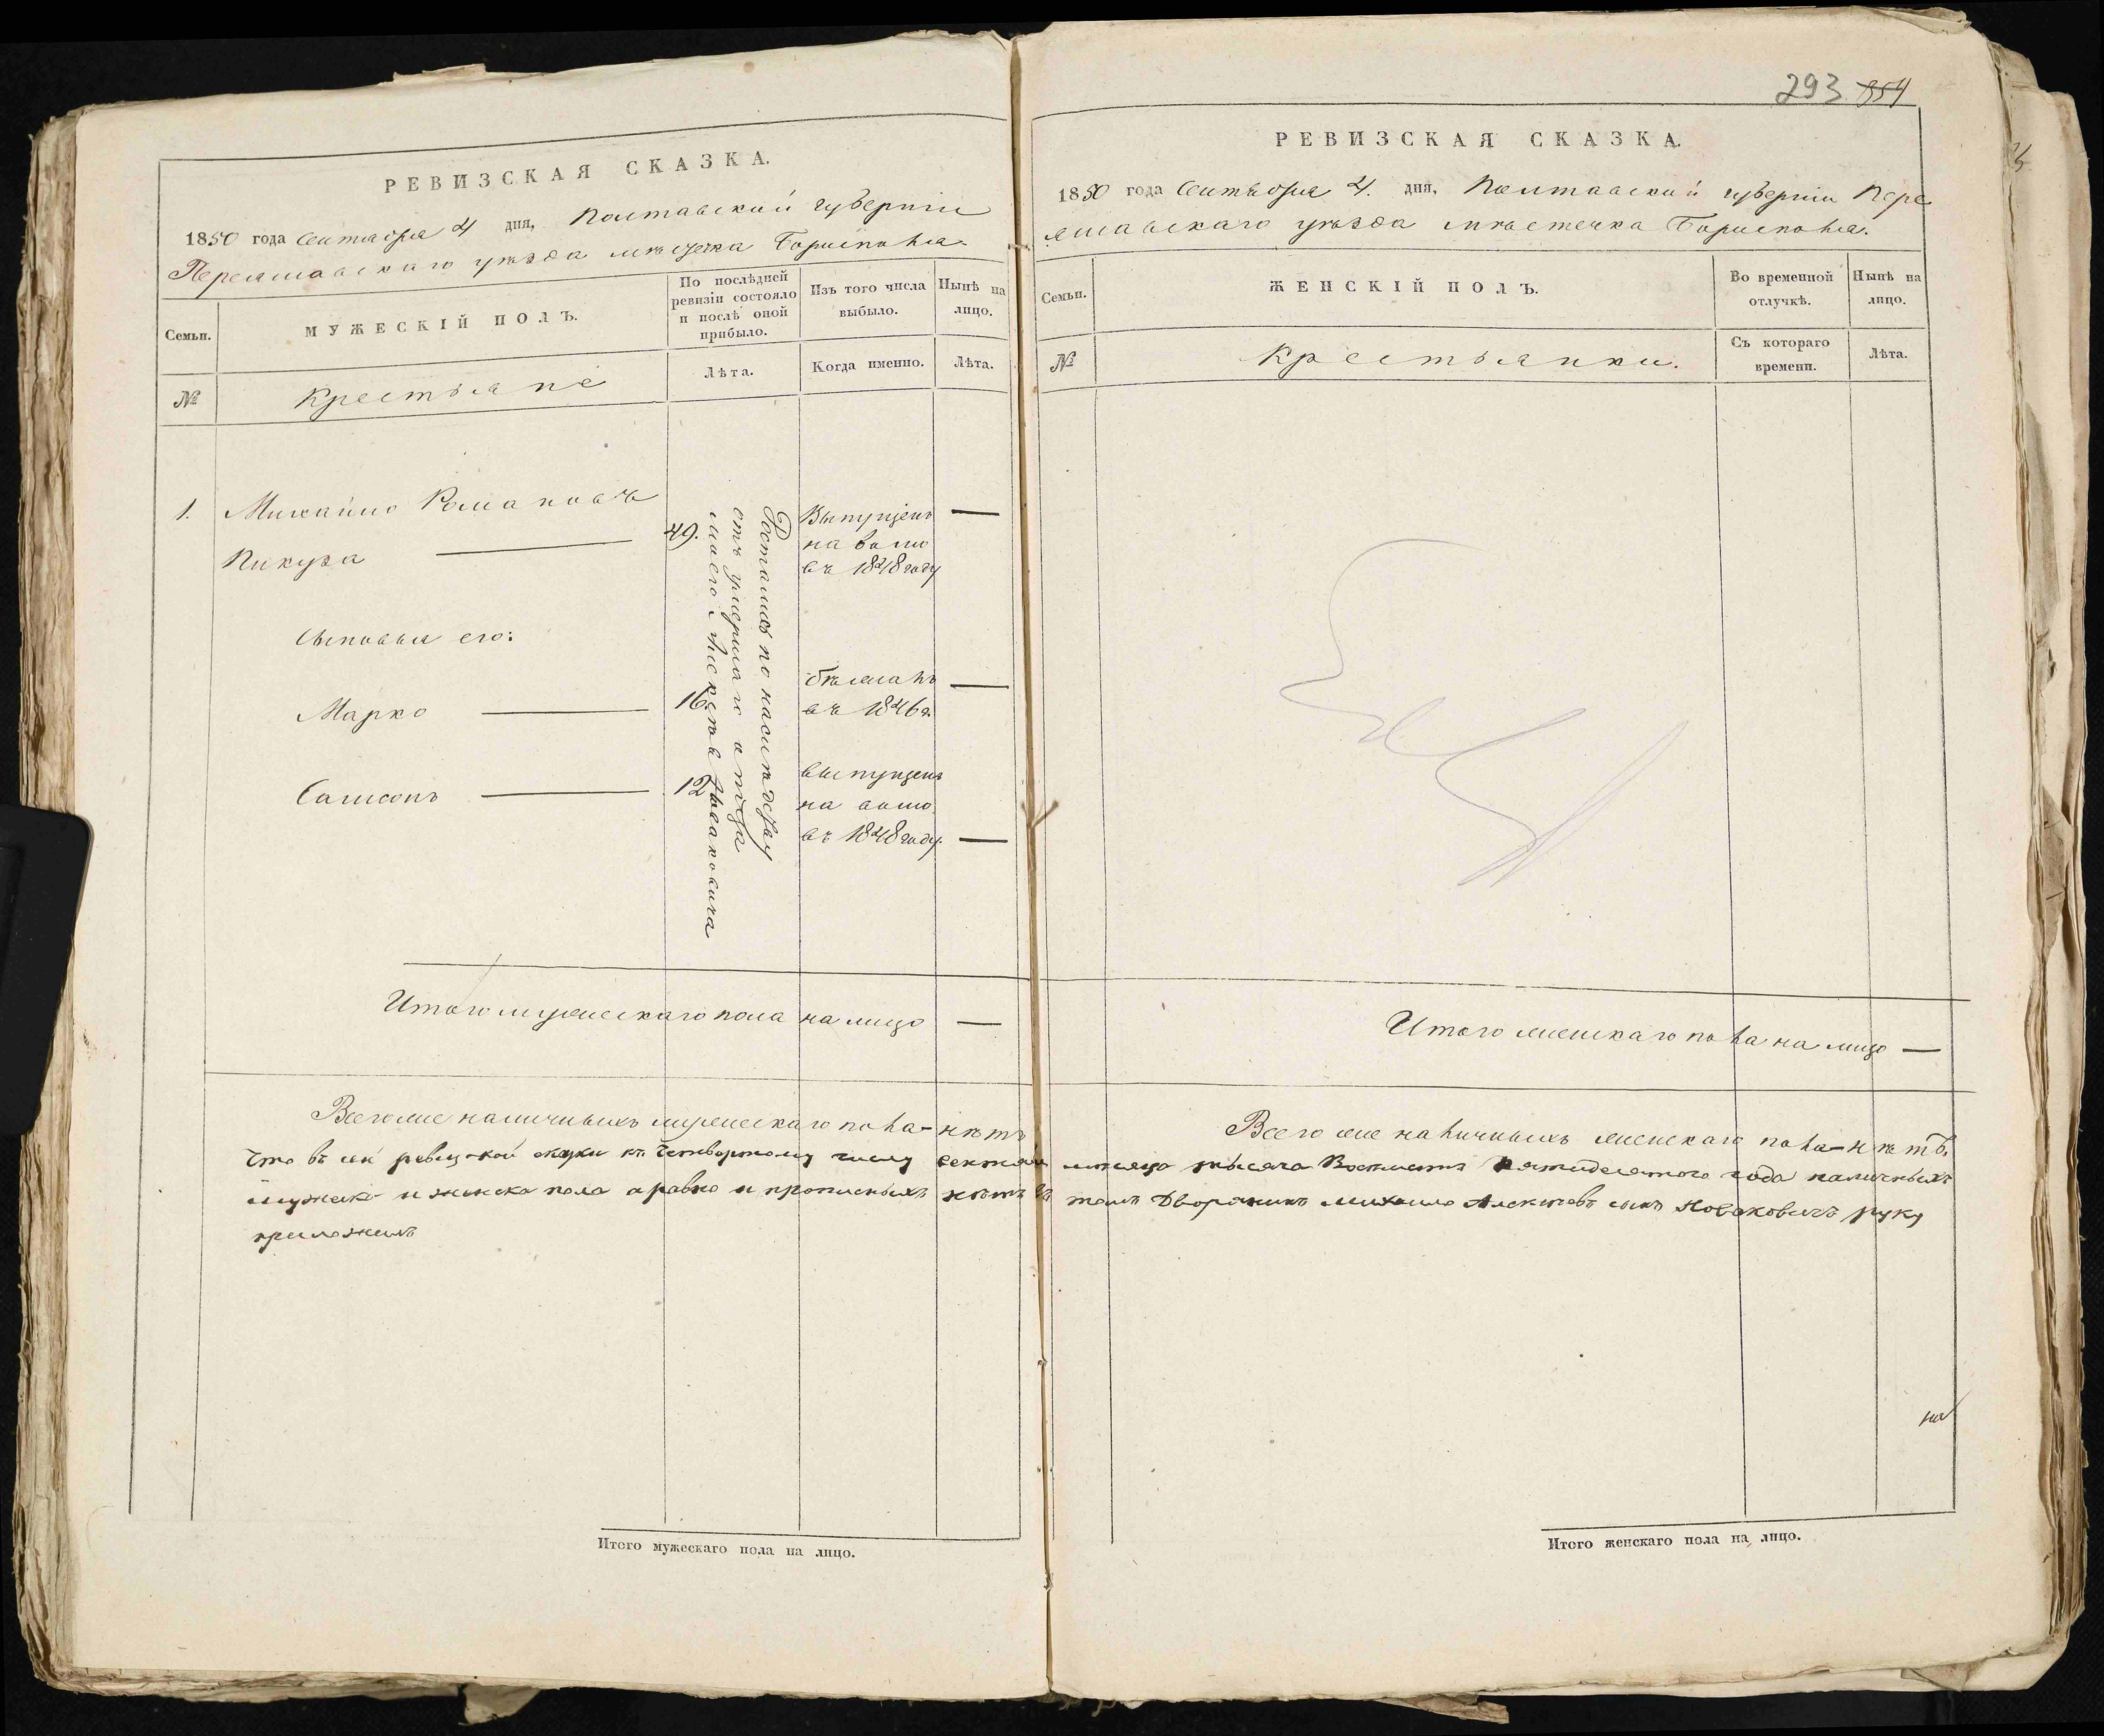 РЕВИЗСКАЯ СКАЗКА.
1850 года Сентября 4 дня, Полтавской губерніи
Переяславскаго уѣзда мѣстечка Борисполя.
Семьи.
МУЖЕСКІЙ ПОЛЪ.
По послѣдней
ревизіи состояло
и послѣ оной
прибыло.
Изъ того числа
выбыло.
Нынѣ на
лицо.
№
Крестьяне
Лѣта.
Когда именно.
Лѣта.
1. Михайло Романовъ
Пикуза — 49.
Выпущенъ —
на волю
въ 1848 году
Достались по наслѣдству
отъ умершаго отца
моего Алексѣя Новаковича
Сыновья его:
Марко — 16.
бѣжалъ —
въ 1846 г.
Самсонъ — 12
выпущенъ
на волю
въ 1848 году. —
Итого мужескаго пола на лицо —
Всего же наличныхъ мужескаго пола - нѣтъ
РЕВИЗСКАЯ СКАЗКА.
293 854
1850 года Сентября 4. дня, Полтавской губерніи Пере
яславскаго уѣзда мѣстечка Борисполя.
Семьи.
ЖЕНСКІЙ ПОЛЪ.
Во временной
отлучкѣ.
Нынѣ на
лицо.
№
Крестьянки.
Съ котораго
времени.
Лѣта.
Итого женскаго пола на лицо —
Всего же наличныхъ женскаго пола - нѣтъ.
Что въ сей ревизской сказки къ четвертому числу сентября мѣсяца тысяча восмисотъ пятидесятого года наличныхъ
мужеска и женска пола а равно и прописныхъ нѣтъ въ томъ Дворянинъ Михайло Алексѣевъ сынъ Новаковичъ руку
приложилъ
Итого мужескаго пола на лицо.
Итого женскаго пола на лицо.